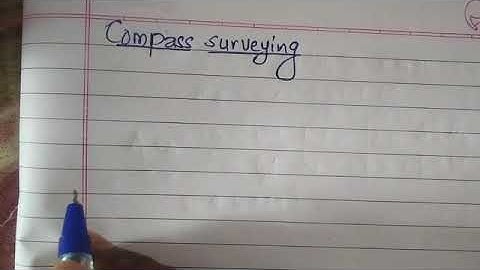 Compass surveying